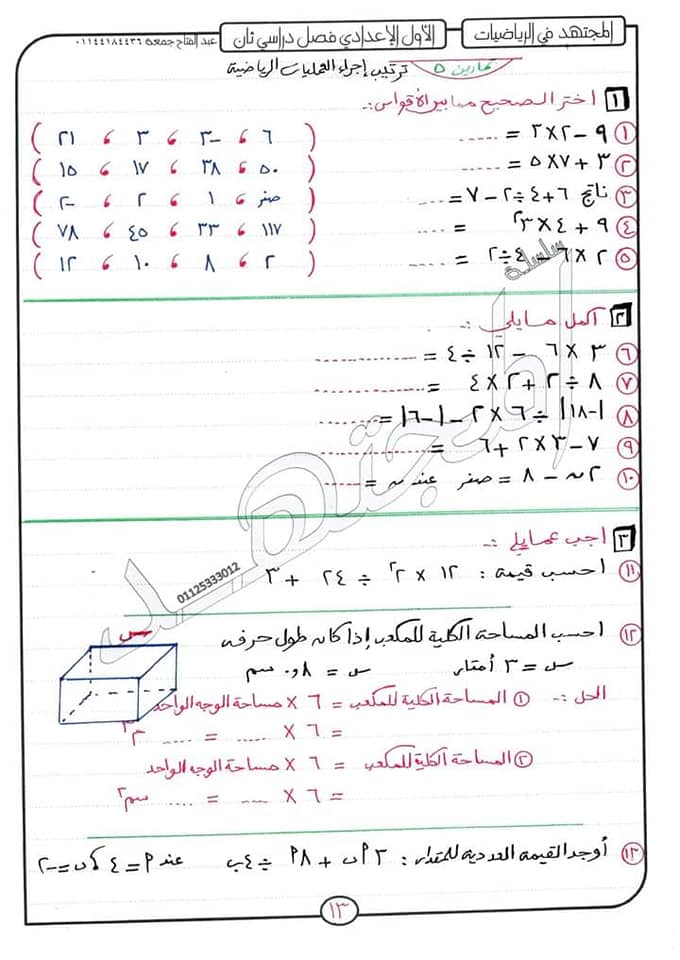 المجتهد في الرياضيات
الأول الإعدادي فصل دراسي ثان
عبد الفتاح جمعه ٠١١٤٤١٨٤٤٣٦
تمارين ٥ ترتيب إجراء العمليات الرياضية
١ اختر الصحيح مما بين الأقواس :-
١ ٩ - ٢ × ٣ = ..... ( ٦ ، -٣ ، ٣ ، ٢١ )
٢ ٣ + ٧ × ٥ = ..... ( ٥٠ ، ٣٨ ، ١٧ ، ١٥ )
٣ ناتج ٦ + ٤ ÷ ٢ - ٧ = .... ( صفر ، ١ ، ٢ ، -٢ )
٤ ٩ + ٤ × ٣² = .... ( ١١٧ ، ٣٣ ، ٤٥ ، ٧٨ )
٥ ٢ × ٦ - ٤ ÷ ٢ = .... ( ٢ ، ٨ ، ١٠ ، ١٢ )
٢ أكمل ما يلي :-
٦ ٣ × ٦ - ١٢ ÷ ٤ = ..............
٧ ٨ ÷ ٢ + ٢ × ٤ = ..............
٨ |-١٨| ÷ ٦ × ٢ - |-٦| = ..........
٩ ٧ - ٣ × ٢ + ٦ = ..............
١٠ ٢س - ٨ = صفر عند س = .....
سلسلة المجتهد
01125333012
٣ أجب عما يلي :-
١١ احسب قيمة : ١٢ × ٢² ÷ ٢٤ + ٣
١٢ احسب المساحة الكلية للمكعب إذا كان طول حرفه
س
س = ٣ أمتار س = ٨و. سم
الحل :- ١ المساحة الكلية للمكعب = ٦ × مساحة الوجه الواحد
= ٦ × ..... = .... م²
٢ المساحة الكلية للمكعب = ٦ × مساحة الوجه الواحد
= ٦ × .... = .... سم²
١٣ أوجد القيمة العددية للمقدار : ٣ م ن + ٨م ÷ ٤ب عند م = ٤ ، ن = -٢
١٣